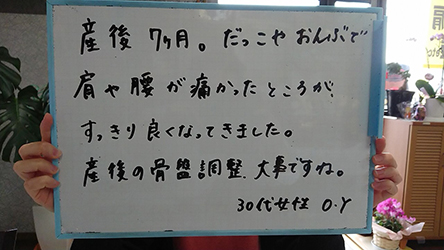 産後 7ヶ月。だっこや おんぶで
肩や腰が痛かったところが、
すっきり良くなってきました。
産後の骨盤調整、大事ですね。
30代女性 O.Y
肩